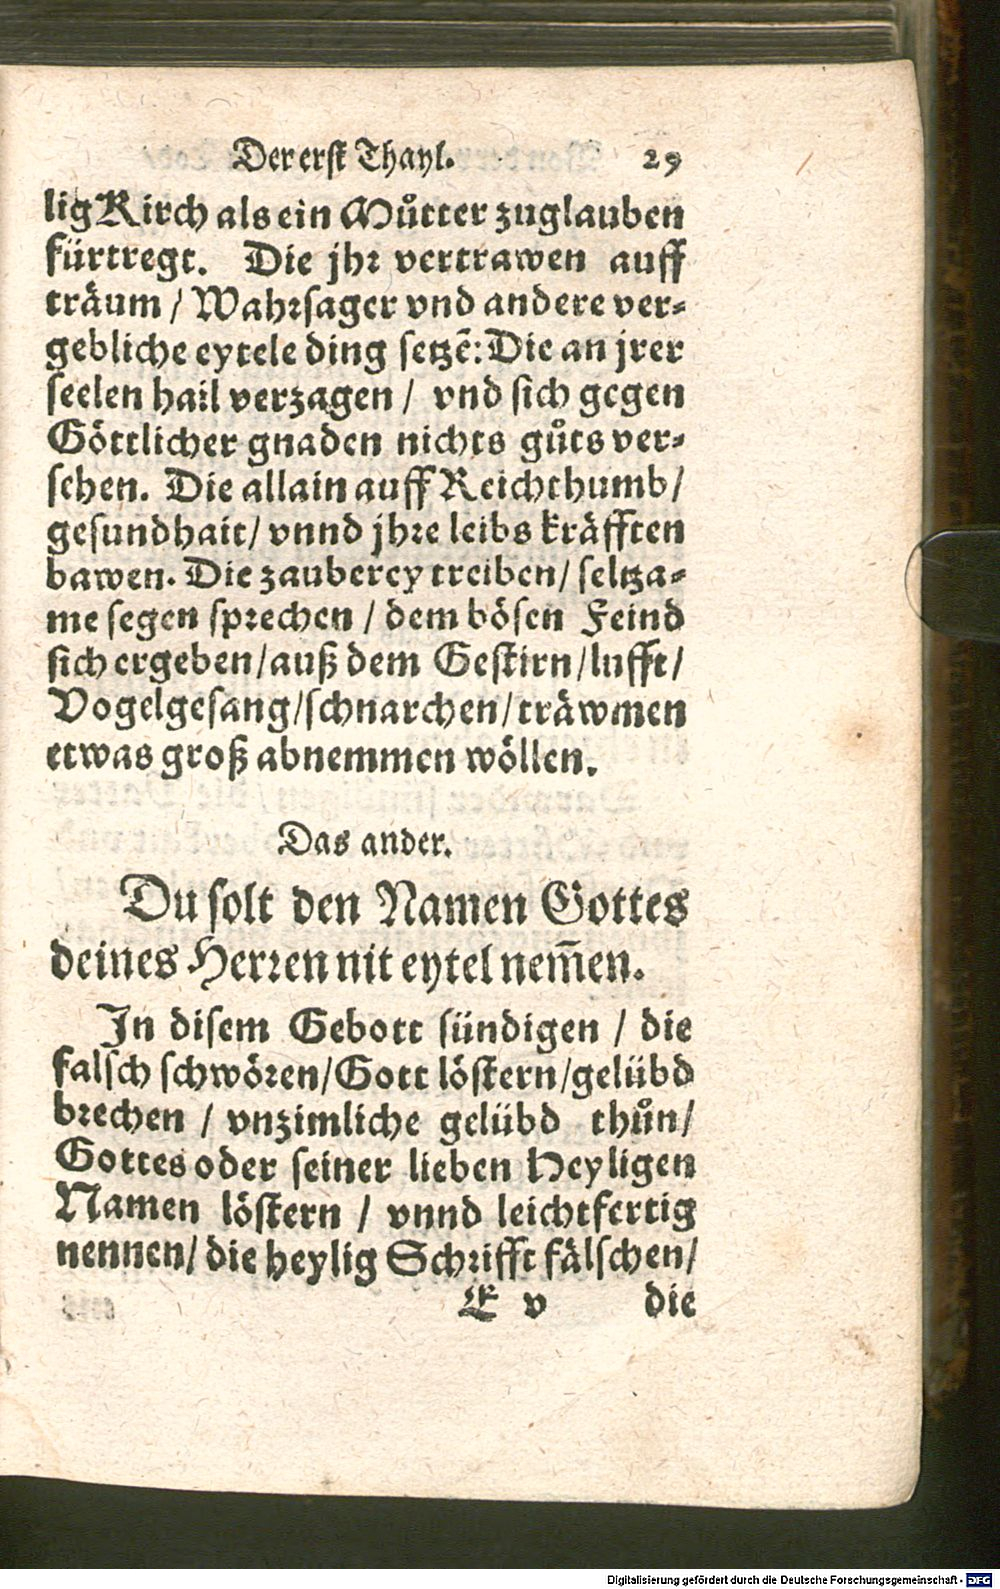 Der erſt Thayl. 29
lig Kirch als ein Můtter zuglauben
fürtregt. Die jhr vertrawen auff
träum / Wahrſager vnd andere ver-
gebliche eytele ding ſetzē: Die an jrer
ſeelen hail verzagen / vnd ſich gegen
Göttlicher gnaden nichts gůts ver-
ſehen. Die allain auff Reichthumb /
geſundhait / vnnd jhre leibs kräfften
bawen. Die zauberey treiben / ſeltza-
me ſegen ſprechen / dem böſen Feind
ſich ergeben / auß dem Geſtirn / lufft /
Vogelgeſang / ſchnarchen / träwmen
etwas groß abnemmen wöllen.
Das ander.
Du ſolt den Namen Gottes
deines Herren nit eytel nem̄en.
In diſem Gebott ſündigen / die
falſch ſchwören / Gott löſtern / gelübd
brechen / vnzimliche gelübd thůn /
Gottes oder ſeiner lieben Heyligen
Namen löſtern / vnnd leichtfertig
nennen / die heylig Schrifft fälſchen /
E v die
Digitalisierung gefördert durch die Deutsche Forschungsgemeinschaft - DFG